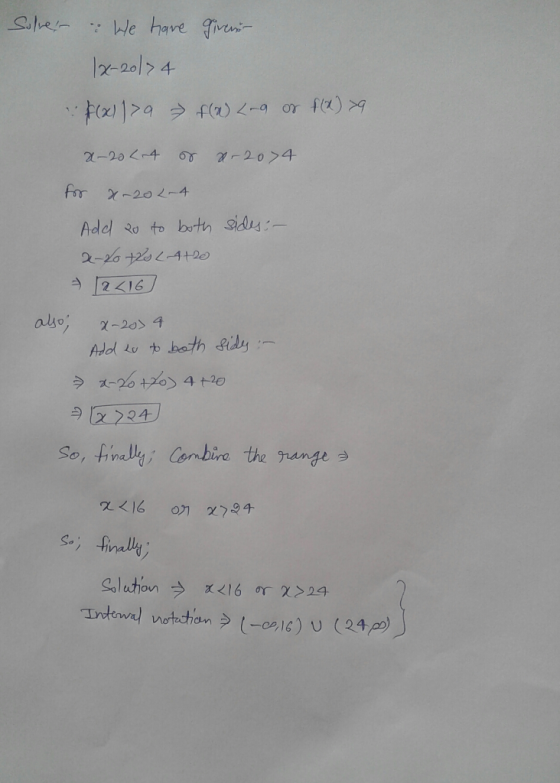 Solve:- ∵ We have given:-
|x-20|>4
∵ |f(x)|>a ⇒ f(x)<-a or f(x)>a
x-20<-4 or x-20>4
for x-20<-4
Add 20 to both sides:-
x-20+20<-4+20
⇒ x<16
also; x-20>4
Add 20 to both sides:-
⇒ x-20+20>4+20
⇒ x>24
So, finally; Combine the range ⇒
x<16 or x>24
So; finally;
Solution ⇒ x<16 or x>24
Interval notation ⇒ (-∞,16) ∪ (24,∞)